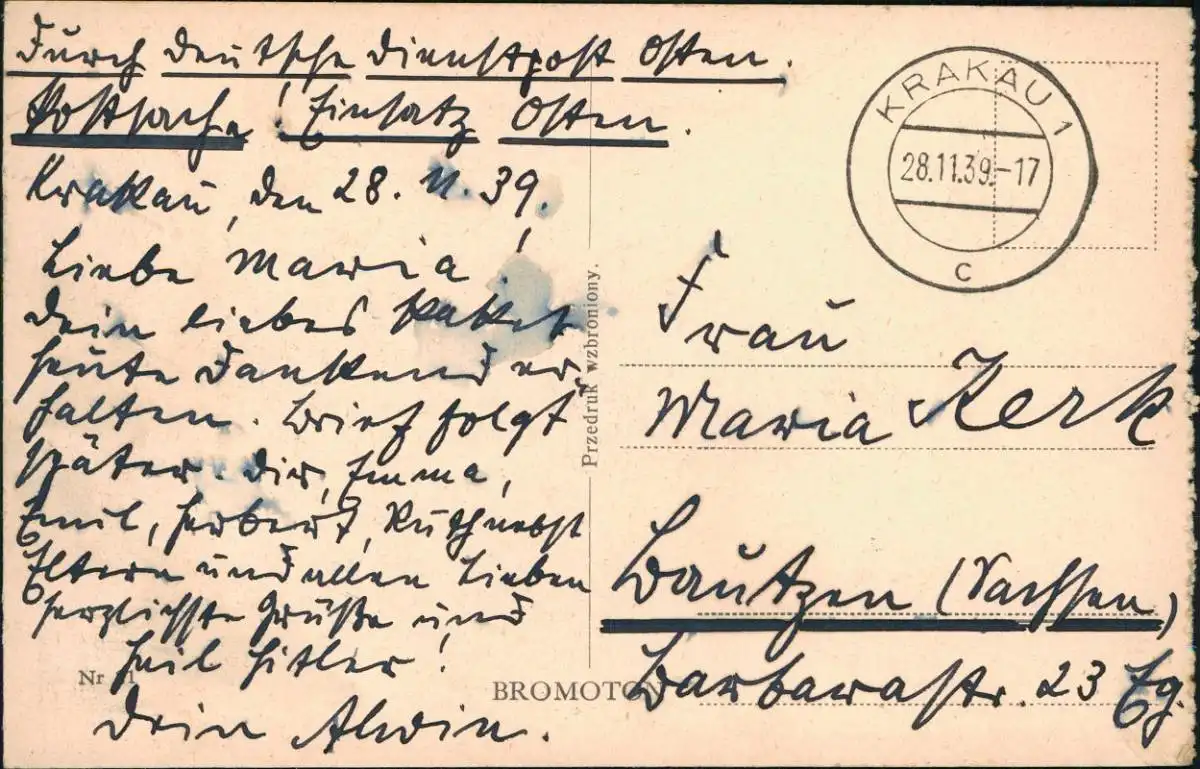 Durch deutsche Dienstpost Osten.
Postsache! Einsatz Osten.
Krakau, den 28. 11. 39.
Liebe Maria!
Dein liebes Paket
heute dankend er
halten. Brief folgt
später. Dir, Emma,
Emil, Herbert, Ruth nebst
Eltern und allen Lieben
herzlichste Grüße und
Heil Hitler!
Dein Alwin.
Nr
BROMOTON
Przedruk wzbroniony.
KRAKAU 1
28.11.39.-17
C
Frau
Maria Zerk
Bautzen (Sachsen)
Barbarastr. 23 Eg.